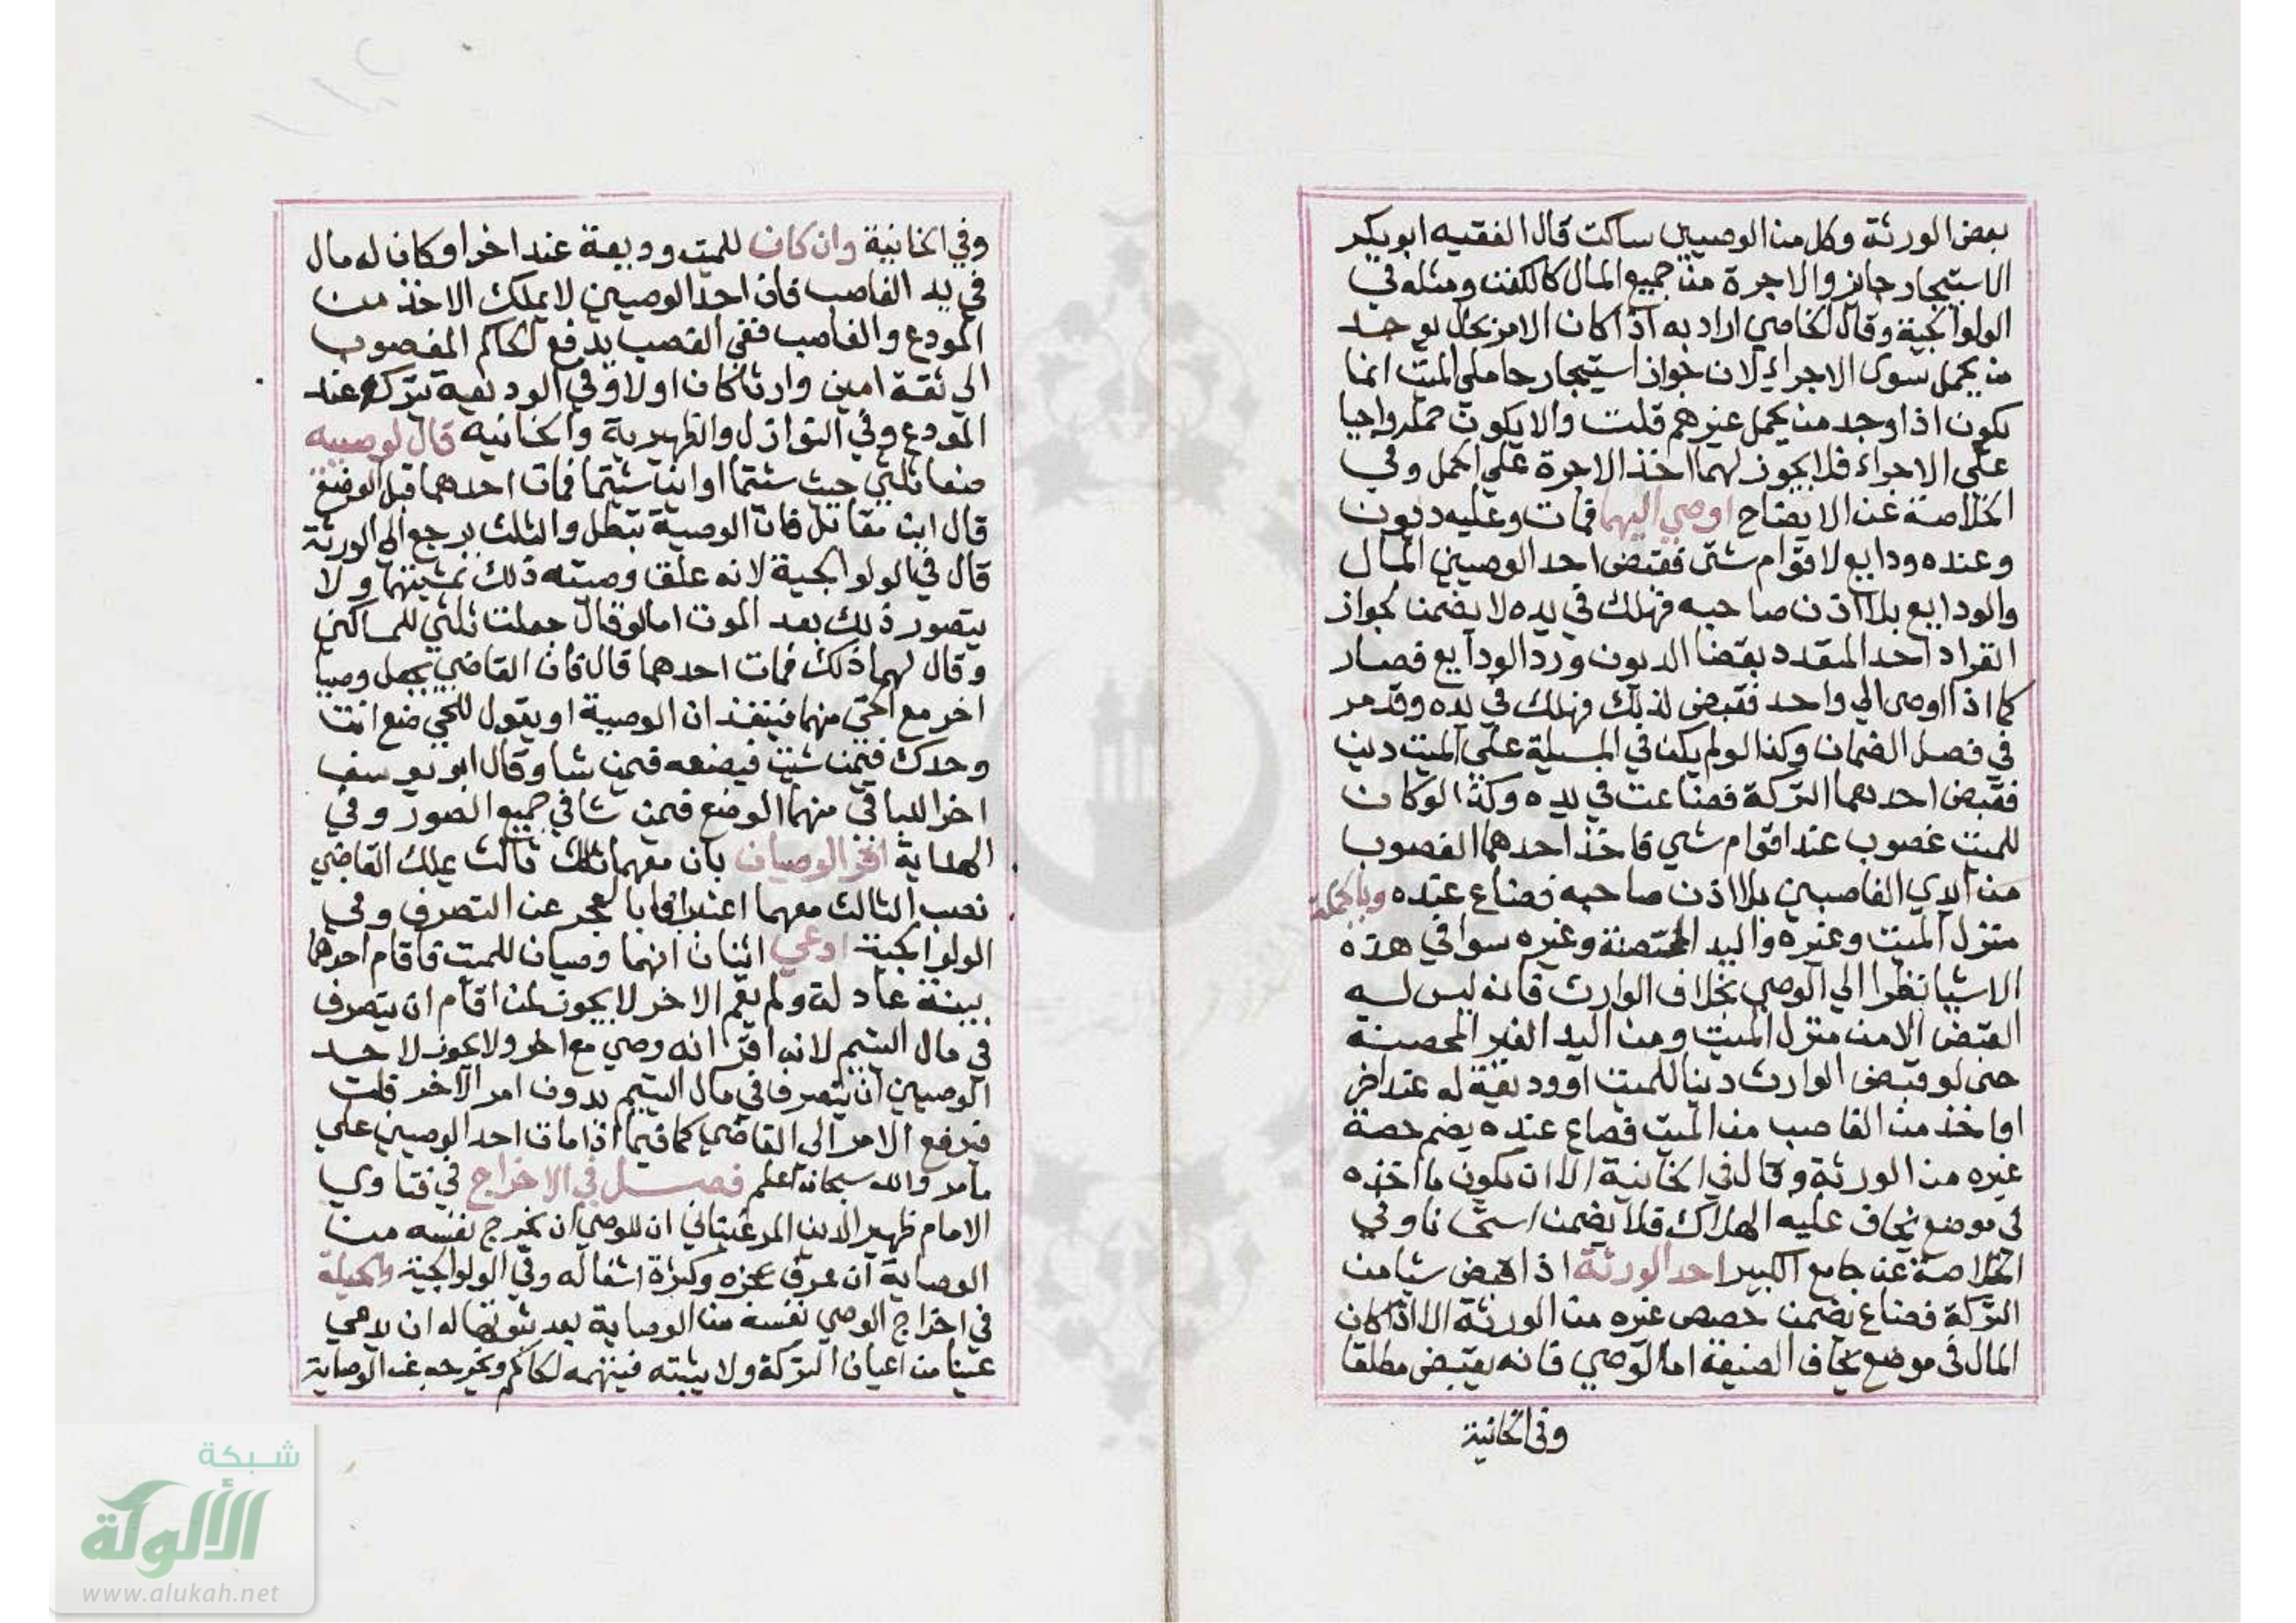 بعض الورثة وكل من الوصيين ساكت قال الفقيه ابوبكر
الاستيجار جايز والاجرة من جميع المال كالكفن ومثله في
الولوالجية وقال الخاصي اراد به اذا كان الامر بحال يوجد
من يحمل سوى الاجراء لان جواز استيجار حاملي الميت انما
يكون اذا وجد من يحمل غيرهم قلت والا يكون حمله واجبا
على الاجراء فلا يجوز لهما اخذ الاجرة على الحمل وفي
الخلاصة عن الايضاح اوصي اليهما فمات وعليه ديون
وعنده ودايع لاقوام شتى فقبض احد الوصيين المال
والودايع بلا اذن صاحبه فهلك في يده لا يضمن لجواز
انفراد احد المتعدد بقضا الديون ورد الودايع فصار
كما اذا اوصى الي واحد فقبض لذلك فهلك في يده وقد مر
في فصل الضمان وكذا لو لم يكن في المسيلة على الميت دين
فقبض احدهما التركة فضاعت في يده وكذا لو كان
للميت غصوب عند اقوام شي فاخذ احدهما الغصوب
من ايدي الغاصبين بلا اذن صاحبه فضاع عنده وبالجملة
منزل الميت وغيره واليد المحصنة وغيره سوا في هذه
الاشيا نظرا الي الوصي بخلاف الوارث فانه ليس له
القبض الا من منزل الميت ومن اليد الغير المحصنة
حتى لو قبض الوارث دينا للميت او وديعة له عند اخر
او اخذ من الغاصب من الميت فضاع عنده يضم حصة
غيره من الورثة وقال في الخانية الا ان يكون ما اخذه
في موضع يخاف عليه الهلاك فلا يضمن استحسانا وفي
الخلاصة عن جامع الكبير احد الورثة اذا قبض شيا من
التركة فضاع يضمن حصص غيره من الورثة الا اذا كان
المال في موضع يخاف الضيعة اما الوصي فانه يقبض مطلقا
وفي الخانية
وفي الخانية وان كان للميت وديعة عند اخر او كان له مال
في يد الغاصب فان احد الوصيين لا يملك الاخذ من
المودع والغاصب ففي الغصب يدفع الحاكم المغصوب
الي ثقة امين وارثا كان اولا وفي الوديعة يتركه عند
المودع وفي النوازل والظهيرية والخانيه قال لوصييه
ضعا ثلثي حيث شئتما او اين شيتما فمات احدهما قبل الوضع
قال ابن مقاتل فان الوصية تبطل والثلث يرجع الى الورثة
قال في الولوالجية لانه علق وصيته ذلك بمشيتهما ولا
يتصور ذلك بعد الموت اما لو قال جعلت ثلثي للمساكين
وقال لهما ذلك فمات احدهما قال فان القاضي يجعل وصيا
اخر مع الحي منهما فينفذان الوصية او يقول للحي ضع انت
وحدك فيمن شيت فيضعه فيمن شا وقال ابو يوسف
اخرا للباقي منهما الوضع فيمن شا في جميع الصور وفي
الهداية اقر الوصيان بان معهما ثالث يملك القاضي
نصب الثالث معهما اعترافا بالعجر عن التصرف وفي
الولوالجية ادعي اثنان انهما وصيان للميت فاقام احدهما
بينة عادلة ولم يقم الاخر لا يجوز لمن اقام ان يتصرف
في مال اليتيم لانه اقر انه وصي مع اخر ولا يجوز لاحد
الوصيين ان يتصرف في مال اليتيم بدون امر الاخر قلت
فيرفع الامر الى القاضي كما فيما اذا مات احد الوصيين علي
ما مر والله سبحانه اعلم فصل في الاخراج في فتاوي
الامام ظهير الدين المرغيناني ان للوصي ان يخرج نفسه من
الوصاية ان عرف عجزه وكثرة اشغاله وفي الولوالجية والحيلة
في اخراج الوصي نفسه من الوصاية بعد ثبوتها له ان يدعي
عينا من اعيان التركة ولا يثبته فيتهمه الحاكم ويخرجه عن الوصاية
شبكة
الألوكة
www.alukah.net